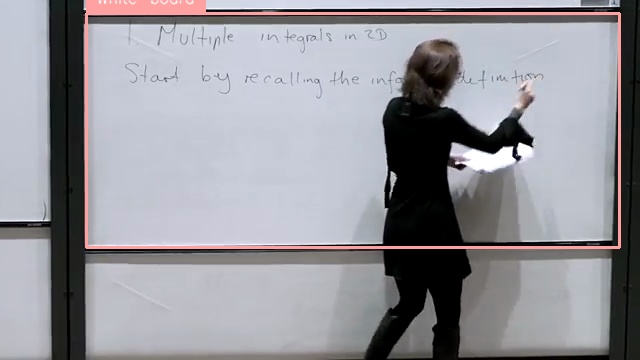 White board
1. Multiple integrals in 2D
Start by recalling the definition